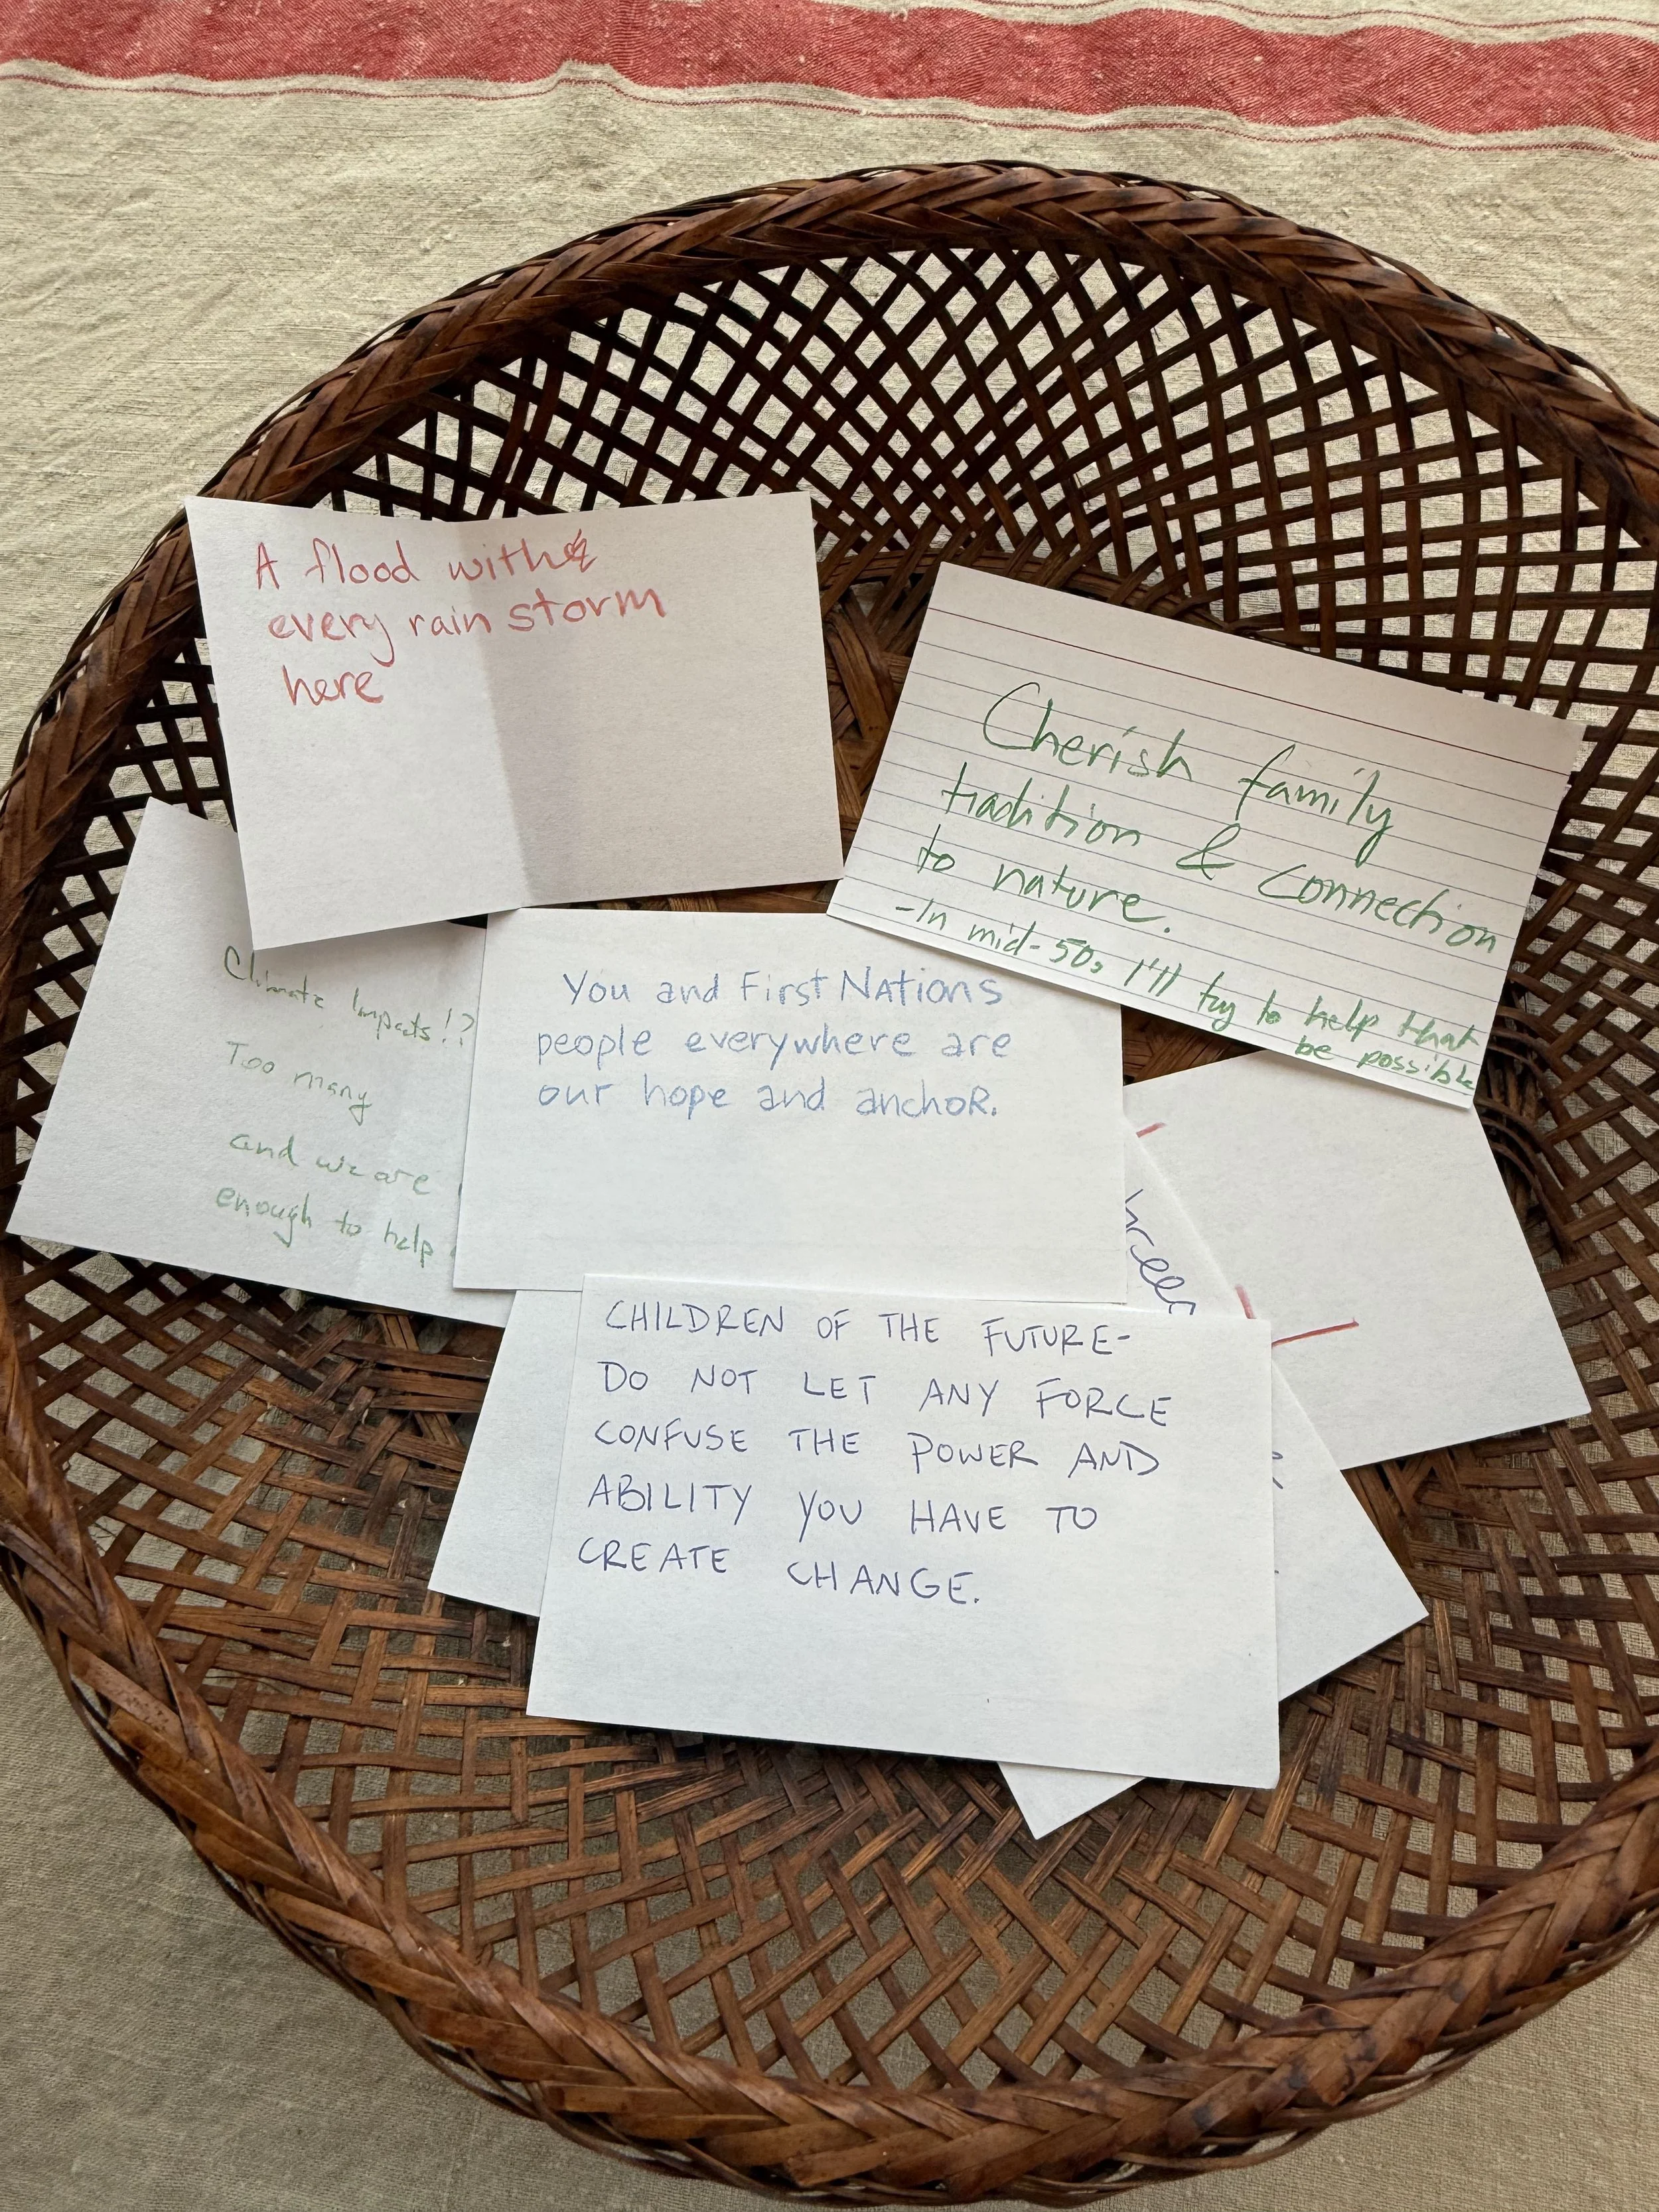 A flood with
every rain storm
here
Cherish family
tradition & connection
to nature.
-In mid-50s I'll try to help that
be possible
Climate Impacts!?
Too many
and we are
enough to help
You and First Nations
people everywhere are
our hope and anchor.
CHILDREN OF THE FUTURE-
DO NOT LET ANY FORCE
CONFUSE THE POWER AND
ABILITY YOU HAVE TO
CREATE CHANGE.